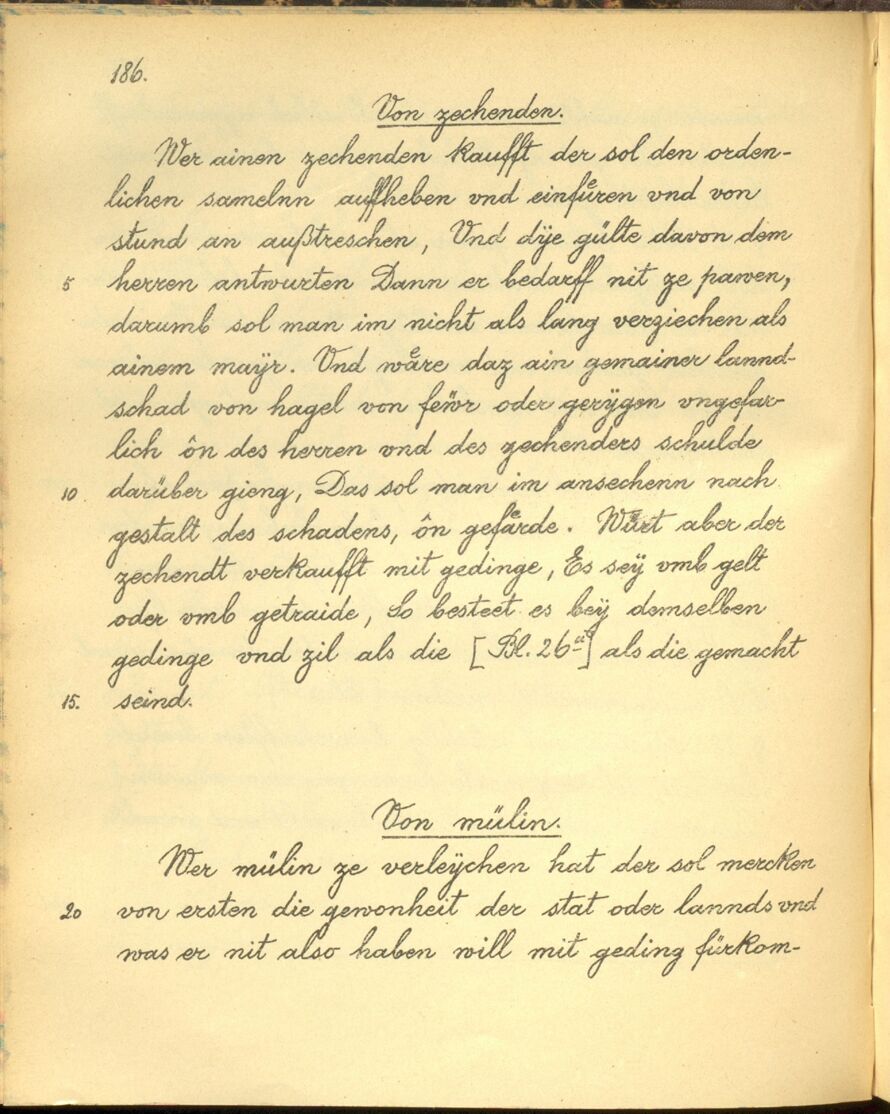 186.
Von zechenden.
Wer ainen zechenden kaufft der sol den orden-
lichen samelnn auffheben vnd einfuͤren vnd von
stund an außtreschen, Vnd dÿe gülte davon dem
5 herren antwurten Dann er bedarff nit ze pawen,
darumb sol man im nicht als lang verziechen als
ainem maÿr. Vnd waͤre daz ain gemainer lannd-
schad von hagel von feẅr oder gerÿgen vngefar-
lich ôn des herren vnd des zechenders schulde
10 darüber gieng, Das sol man im ansechenn nach
gestalt des schadens, ôn gefaͤrde. Wuͤrt aber der
zechendt verkaufft mit gedinge, Es seÿ vmb gelt
oder vmb getraide, So besteet es beÿ demselben
gedinge vnd zil als die [Bl. 26ᵃ] als die gemacht
15. seind.
Von mülin.
Wer mülin ze verleÿchen hat der sol mercken
20 von ersten die gewonheit der stat oder lannds vnd
was er nit also haben will mit geding fürkom-